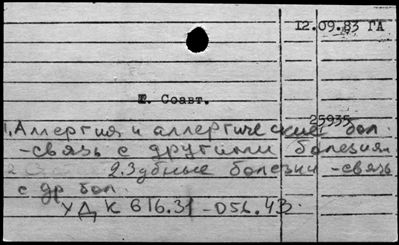 12.09.83 ГА
I. Соавт.
25935
1. Аллергия и аллергические бол.
- связь с другими болезнями
2. Зубные болезни - связь
с др бол.
УДК 616.31-056.43.